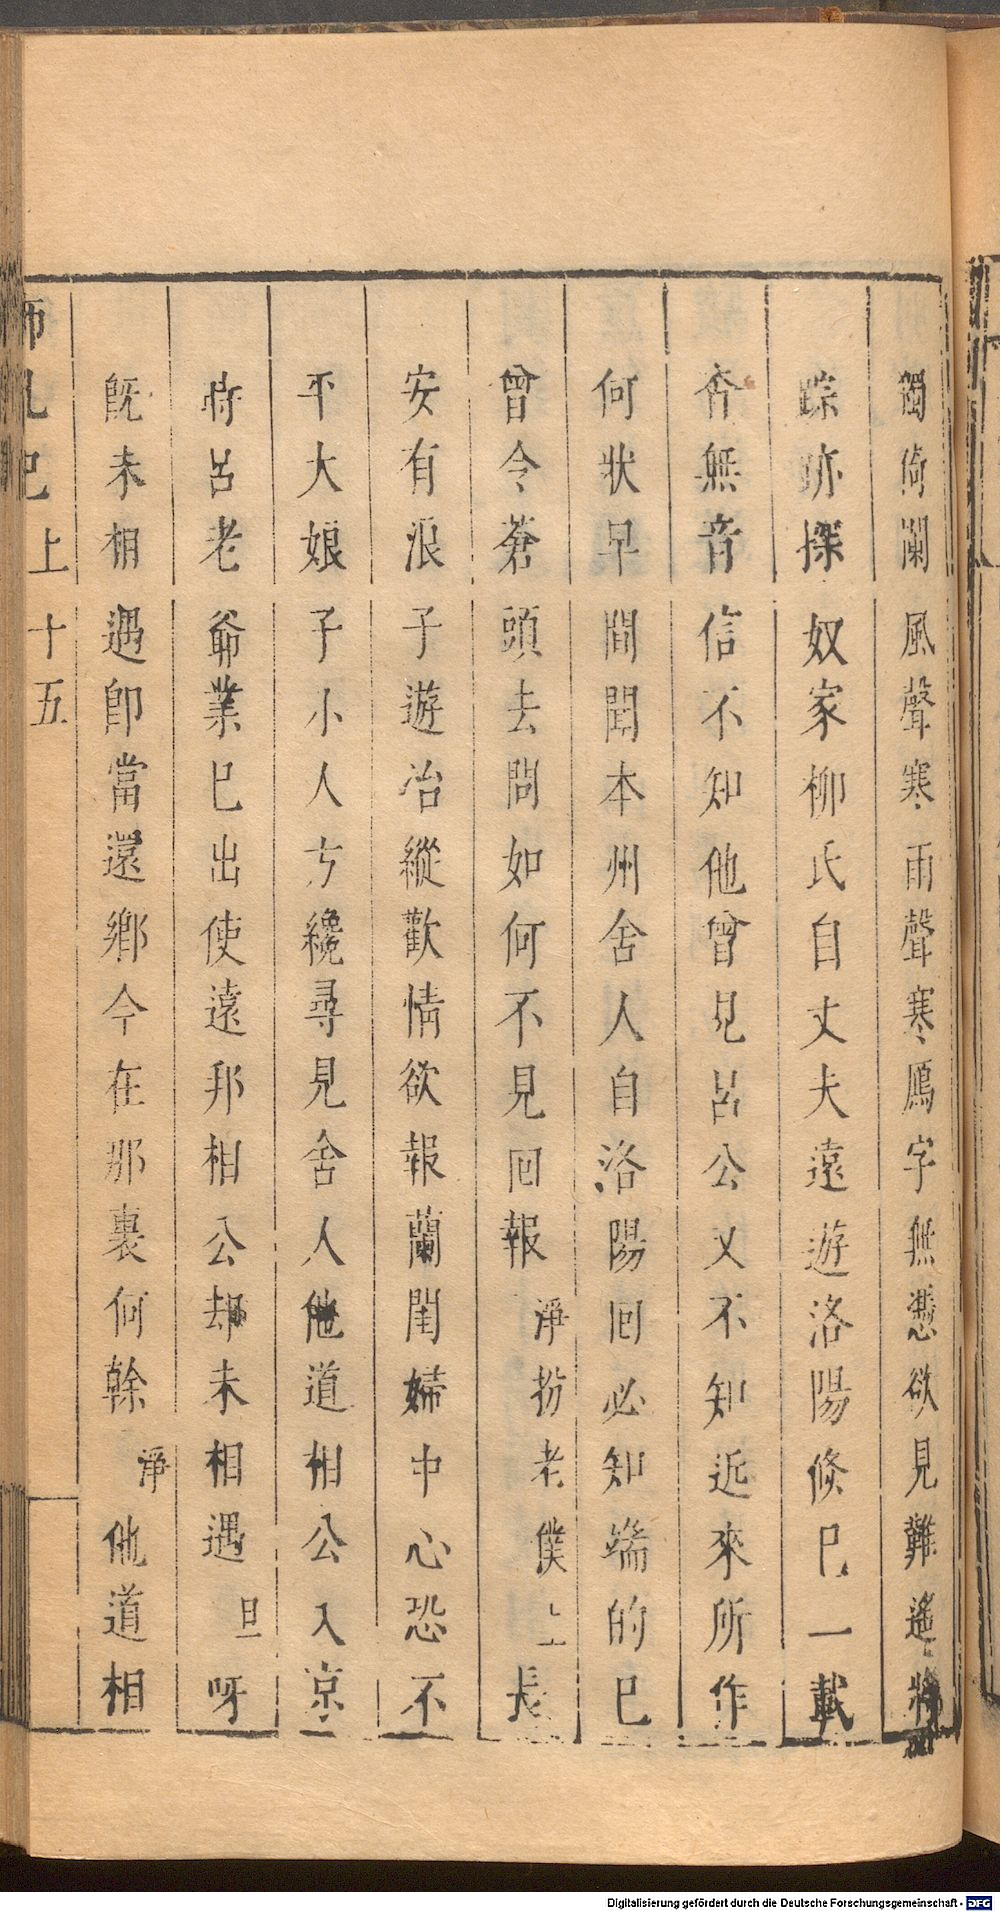 獨倚闌風聲寒雨聲寒鴈字無憑欲見難遙將
踪跡探奴家柳氏自丈夫遠遊洛陽倐巳一載
杳無音信不知他曾見呂公乂不知近來所作
何狀早間聞本州舍人自洛陽回必知端的巳
曾令蒼頭去問如何不見回報淨扮老僕上長
安有浪子遊冶縱歡情欲報蘭閨婦中心恐不
平大娘子小人方纔尋見舍人他道相公入京
時呂老爺業巳出使遠邦相公却未相遇旦呀
既未相遇卽當還鄉今在那裏何幹淨他道相
上十五
Digitalisierung gefördert durch die Deutsche Forschungsgemeinschaft - DFG